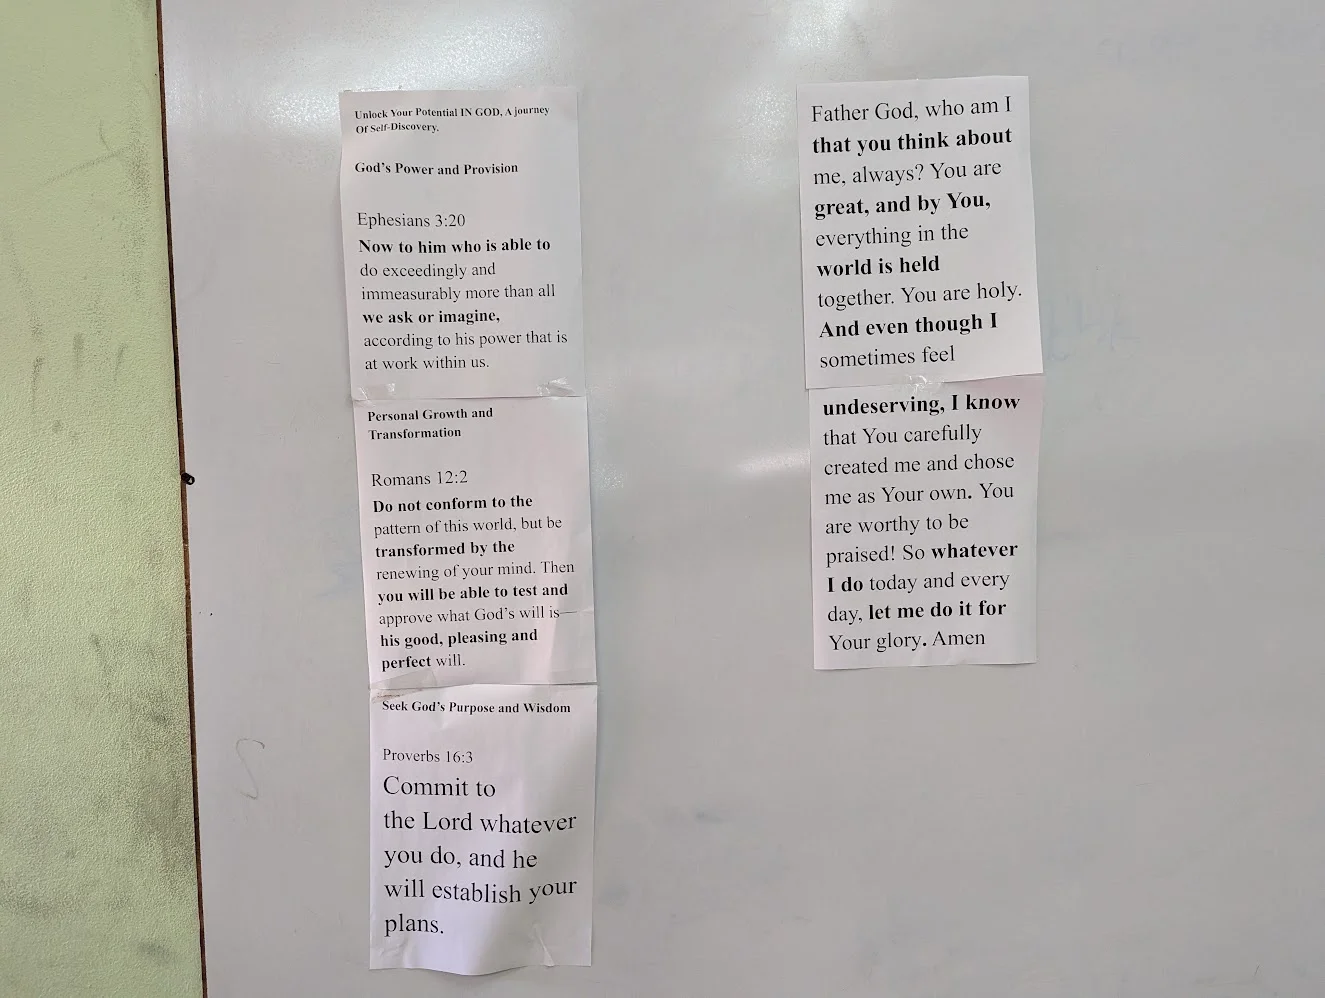 Unlock Your Potential IN GOD, A journey
Of Self-Discovery.
God's Power and Provision
Ephesians 3:20
Now to him who is able to
do exceedingly and
immeasurably more than all
we ask or imagine,
according to his power that is
at work within us.
Personal Growth and
Transformation
Romans 12:2
Do not conform to the
pattern of this world, but be
transformed by the
renewing of your mind. Then
you will be able to test and
approve what God's will is—
his good, pleasing and
perfect will.
Seek God's Purpose and Wisdom
Proverbs 16:3
Commit to
the Lord whatever
you do, and he
will establish your
plans.
Father God, who am I
that you think about
me, always? You are
great, and by You,
everything in the
world is held
together. You are holy.
And even though I
sometimes feel
undeserving, I know
that You carefully
created me and chose
me as Your own. You
are worthy to be
praised! So whatever
I do today and every
day, let me do it for
Your glory. Amen